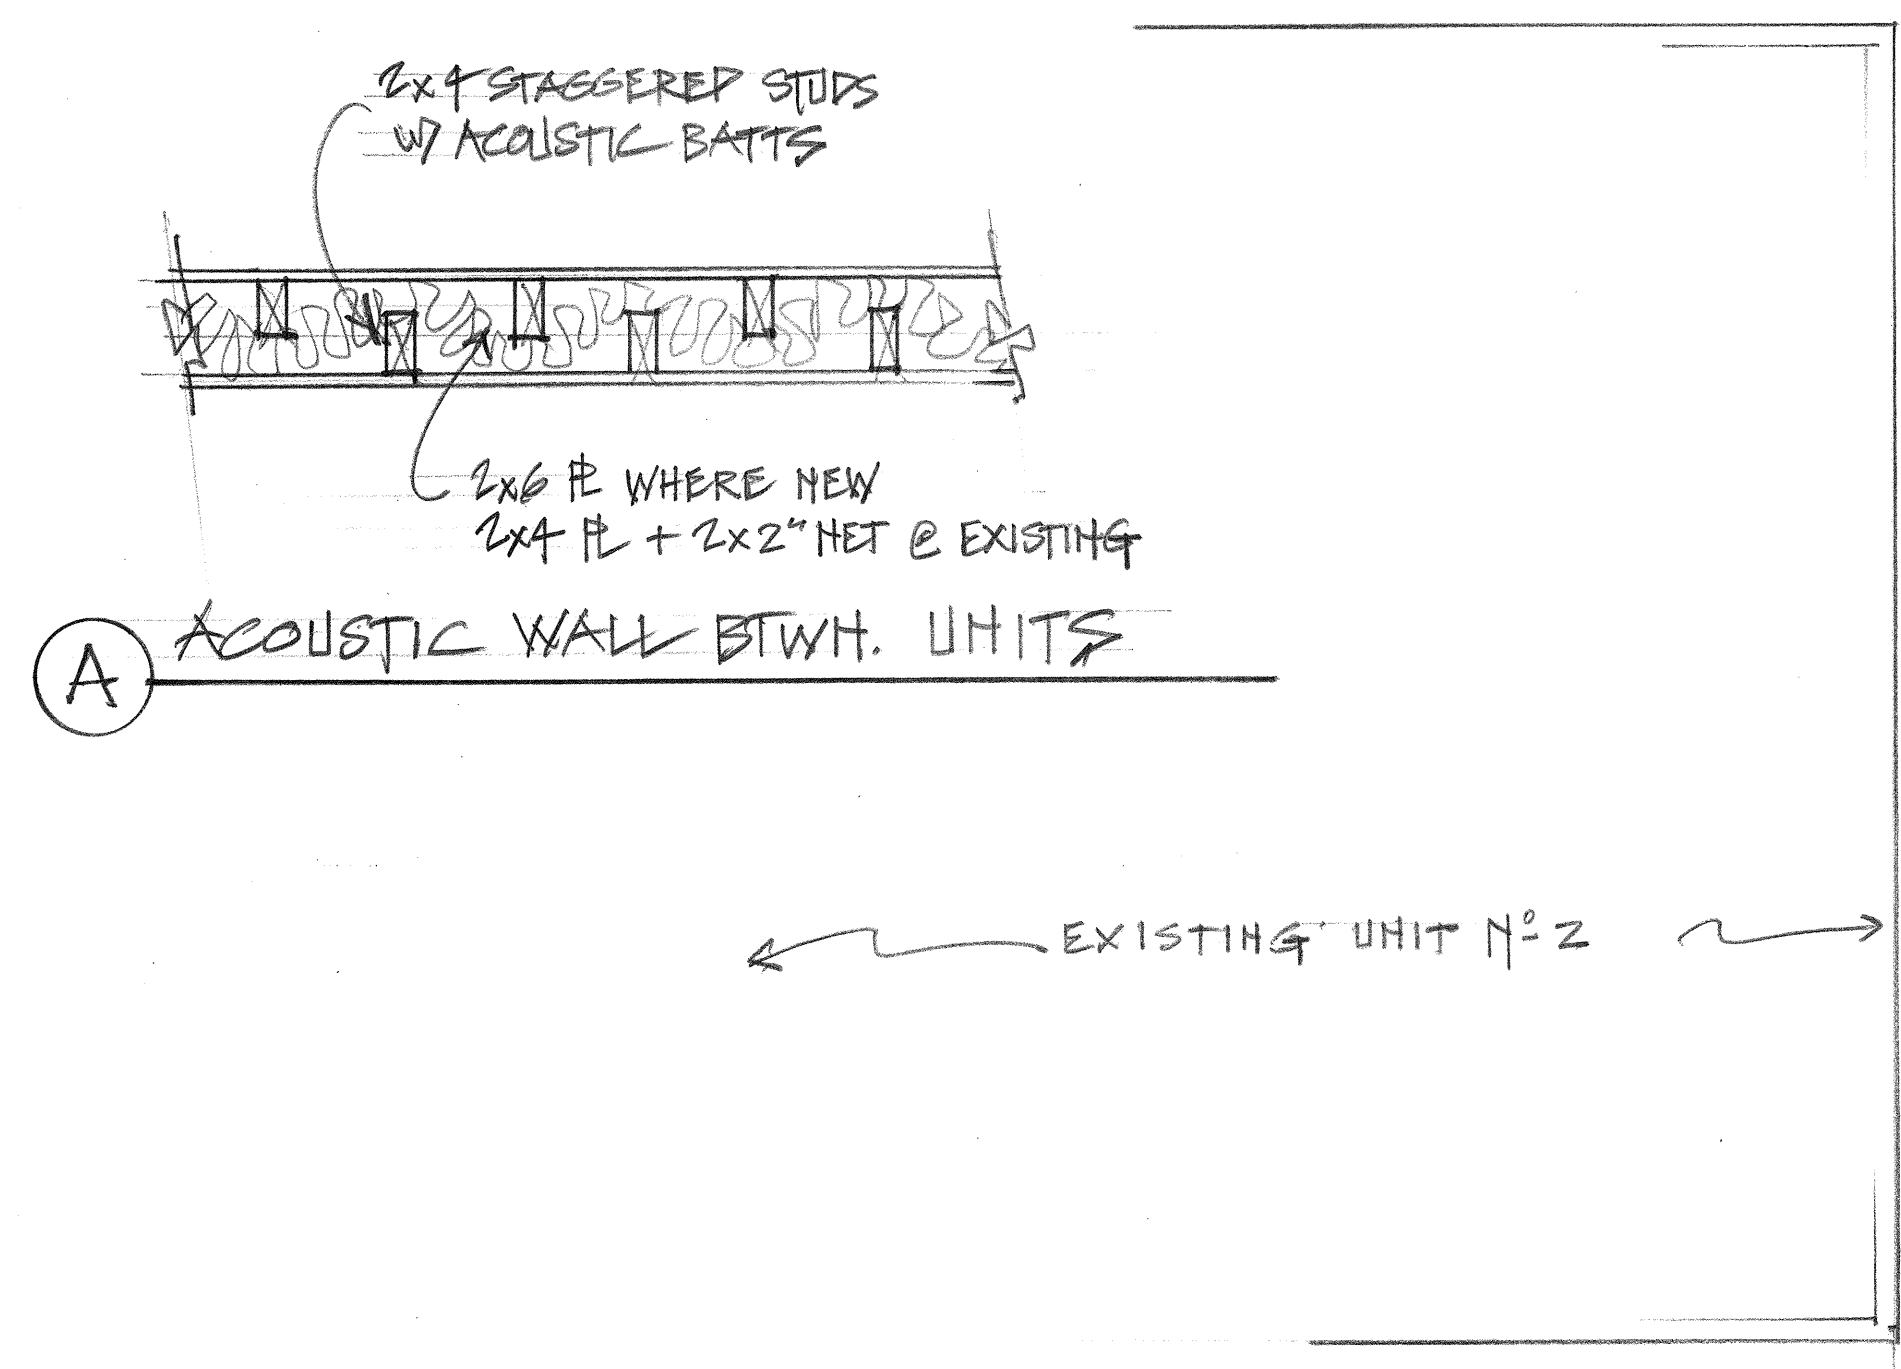 2x4 STAGGERED STUDS
W/ ACOUSTIC BATTS
2x6 PL WHERE NEW
2x4 PL + 2x2" NET @ EXISTING
A
ACOUSTIC WALL BTWN. UNITS
EXISTING UNIT Nº 2